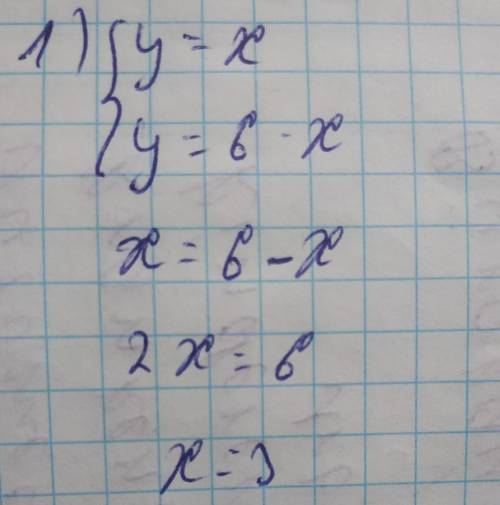 1) { y = x
y = 6 - x
x = 6 - x
2x = 6
x = 3